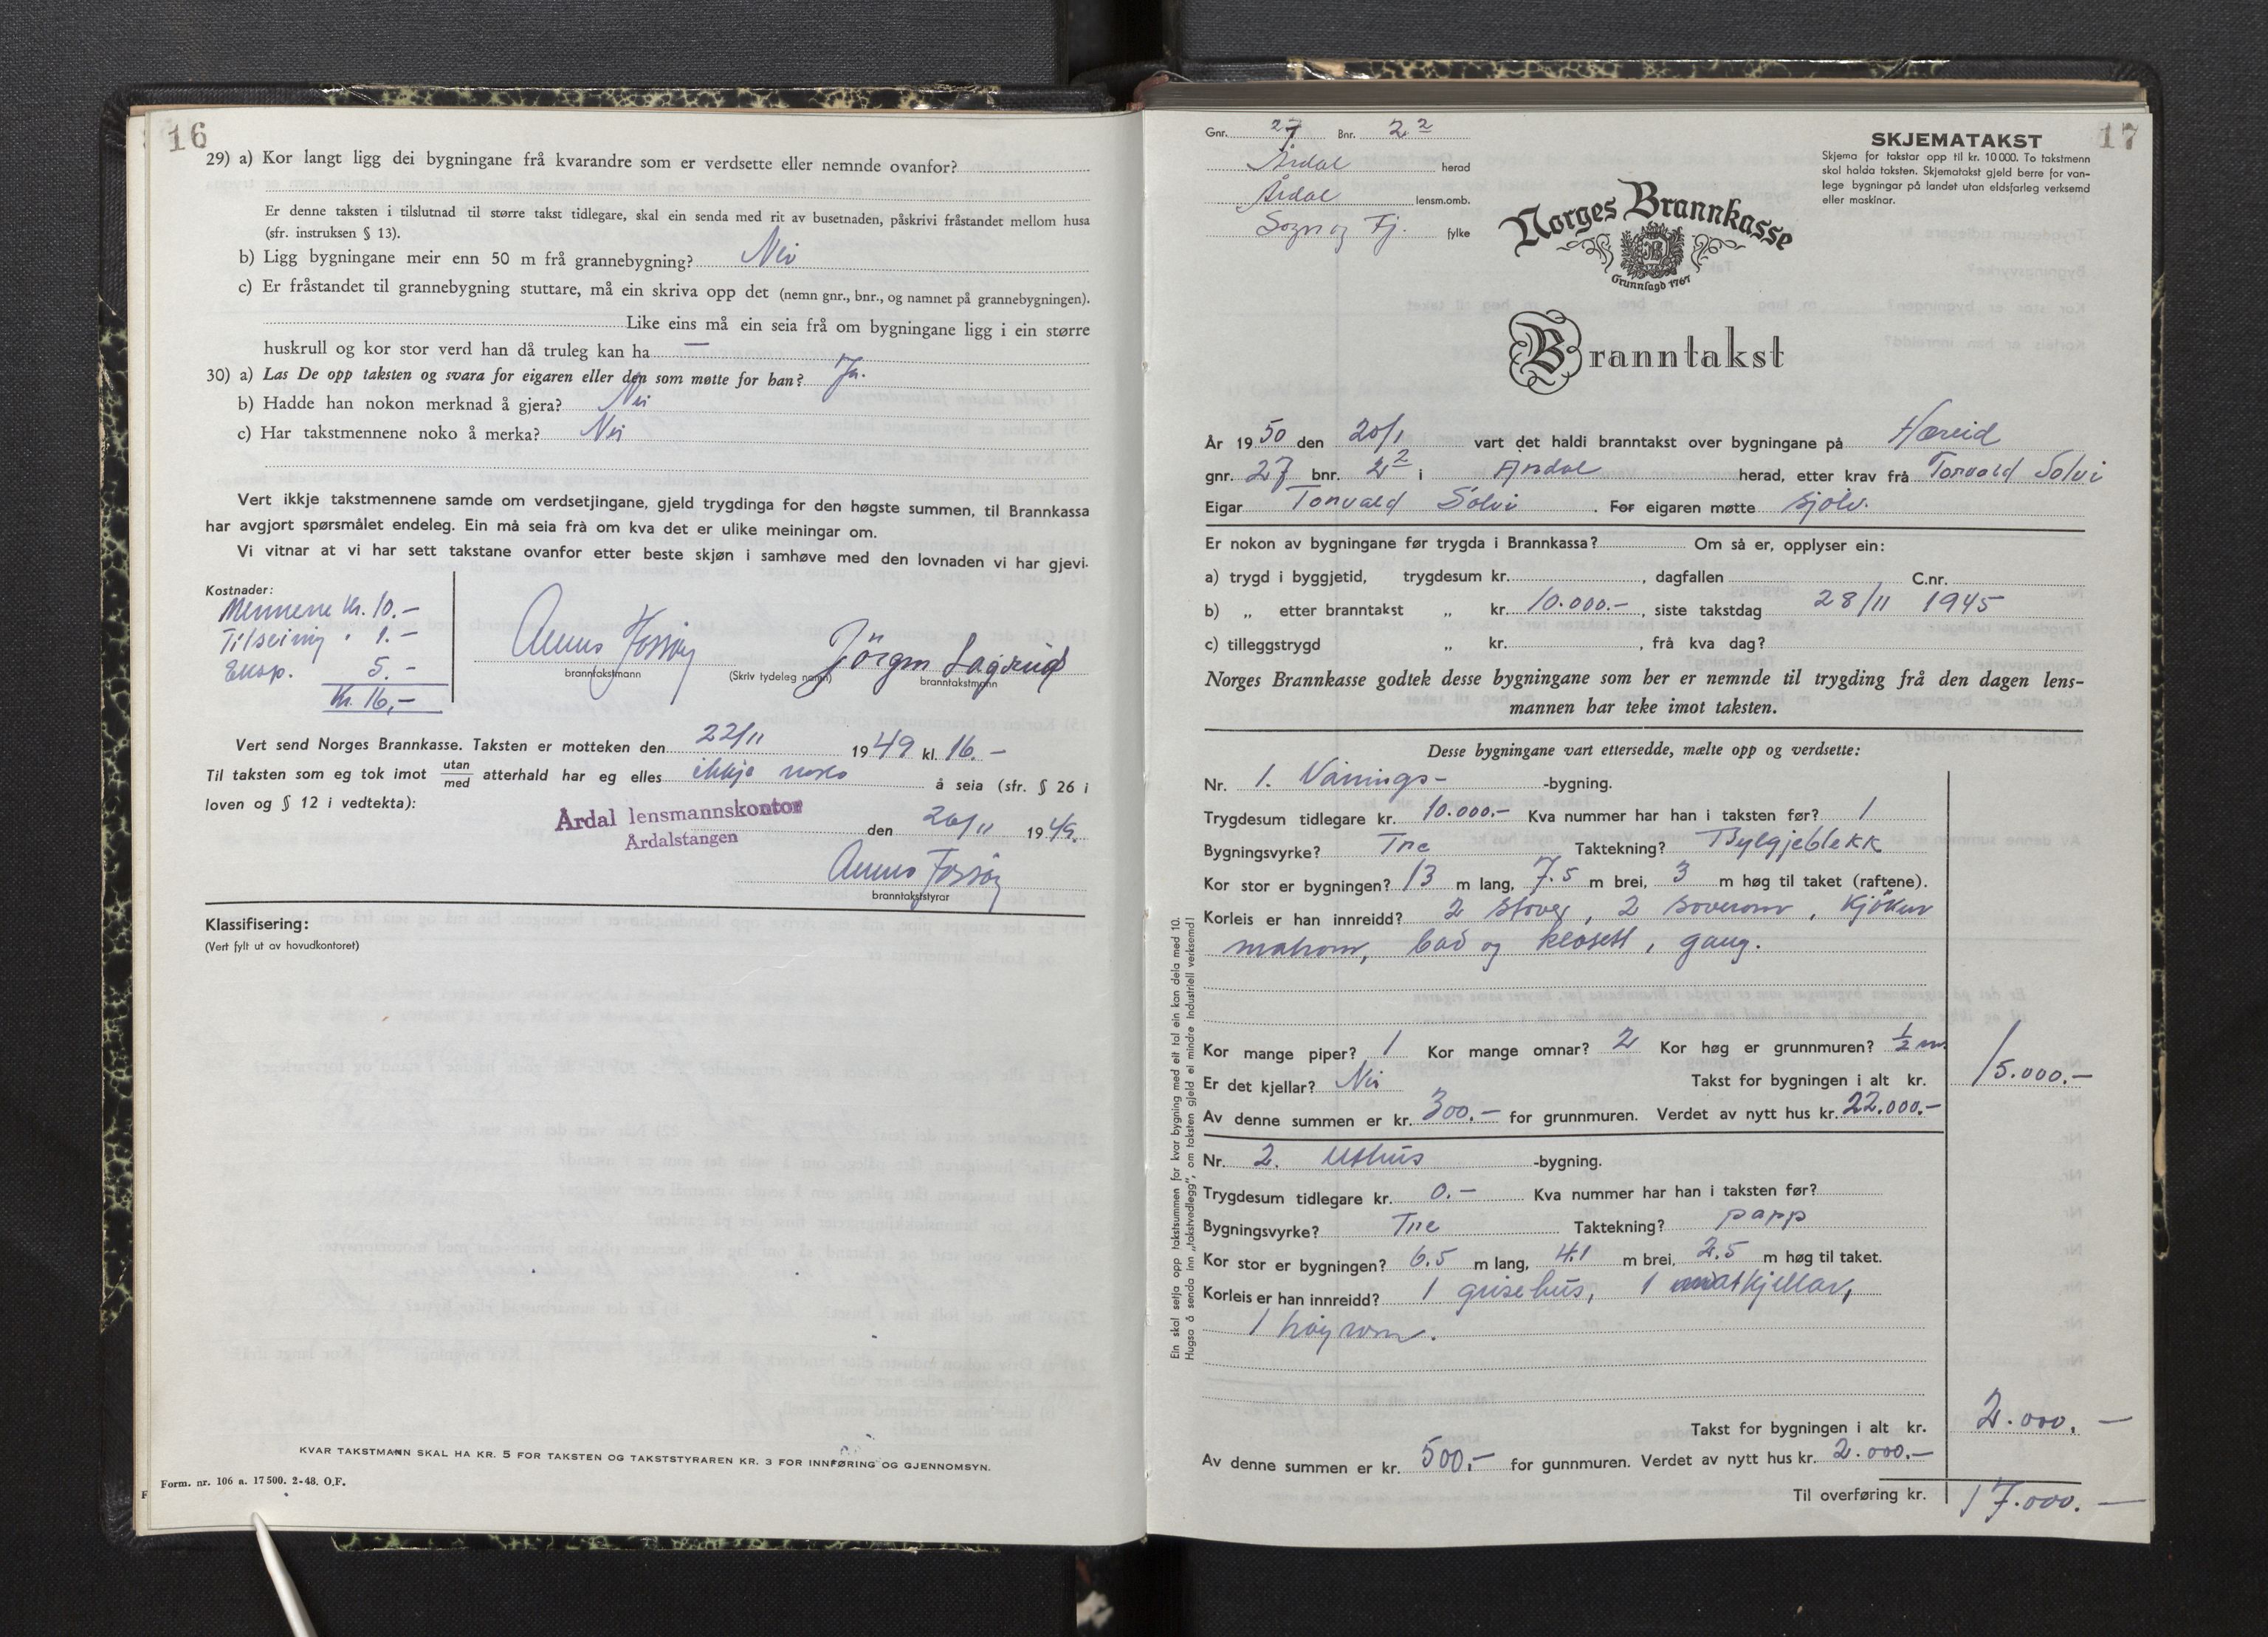 16
29) a) Kor langt ligg dei bygningane frå kvarandre som er verdsette eller nemnde ovanfor?
Er denne taksten i tilslutnad til større takst tidlegare, skal ein senda med rit av busetnaden, påskrivi fråstandet mellom husa
(sfr. instruksen § 13).
b) Ligg bygningane meir enn 50 m frå grannebygning? Nei
c) Er fråstandet til grannebygning stuttare, må ein skriva opp det (nemn gnr., bnr., og namnet på grannebygningen).
Like eins må ein seia frå om bygningane ligg i ein større
huskrull og kor stor verd han då truleg kan ha —
30) a) Las De opp taksten og svara for eigaren eller den som møtte for han? Ja.
b) Hadde han nokon merknad å gjera? Nei
c) Har takstmennene noko å merka? Nei
Vert ikkje takstmennene samde om verdsetjingane, gjeld trygdinga for den høgste summen, til Brannkassa
har avgjort spørsmålet endeleg. Ein må seia frå om kva det er ulike meiningar om.
Vi vitnar at vi har sett takstane ovanfor etter beste skjøn i samhøve med den lovnaden vi har gjevi.
Kostnader:
Mennene kr. 10.—
Tilseing " 1.—
Eksp. 5.—
Kr. 16,—
Jörgen
branntakstmann (Skriv tydeleg namn) branntakstmann
Vert send Norges Brannkasse. Taksten er motteken den 22/11 1949 kl. 16.—
Til taksten som eg tok imot utan/med atterhald har eg elles ikkje noko å seia (sfr. § 26 i
loven og § 12 i vedtekta):
Årdal lensmannskontor
Årdalstangen
den 26/11 1949.
branntakststyrar
Klassifisering:
(Vert fylt ut av hovudkontoret)
KVAR TAKSTMANN SKAL HA KR. 5 FOR TAKSTEN OG TAKSTSTYRAREN KR. 3 FOR INNFØRING OG GJENNOMSYN.
Form. nr. 106 a. 17 500. 2-48. O.F.
17
Gnr. 27 Bnr. 2 2
Årdal herad
Årdal lensm.omb.
Sogn og Fj. fylke
SKJEMATAKST
Skjema for takstar opp til kr. 10 000. To takstmenn
skal halda taksten. Skjematakst gjeld berre for van-
lege bygningar på landet utan eldsfarleg verksemd
eller maskinar.
Norges Brannkasse
Grunnlagd 1767
Branntakst
År 1950 den 20/1 vart det haldi branntakst over bygningane på Hæreid
gnr. 27 bnr. 2 2 i Årdal herad, etter krav frå Torvald Solvi
Eigar Torvald Solvi. For eigaren møtte sjølv.
Er nokon av bygningane før trygda i Brannkassa? Om så er, opplyser ein:
a) trygd i byggjetid, trygdesum kr., dagfallen C.nr.
b) „ etter branntakst „ kr. 10.000.—, siste takstdag 28/11 1945
c) tilleggstrygd „ kr., frå kva dag?
Norges Brannkasse godtek desse bygningane som her er nemnde til trygding frå den dagen lens-
mannen har teke imot taksten.
Desse bygningane vart ettersedde, mælte opp og verdsette:
Nr. 1. Vånings- -bygning.
Trygdesum tidlegare kr. 10.000.— Kva nummer har han i taksten før? 1
Bygningsvyrke? Tre Taktekning? Bylgjeblekk
Kor stor er bygningen? 13 m lang, 7.5 m brei, 3 m høg til taket (raftene).
Korleis er han innreidd? 2 stover, 2 soverom, kjökur
matrom, bad og klosett, gang.
Kor mange piper? 1 Kor mange omnar? 2 Kor høg er grunnmuren? ½ m.
Er det kjellar? Nei Takst for bygningen i alt kr. 15.000.—
Av denne summen er kr. 300.— for grunnmuren. Verdet av nytt hus kr. 22.000.—
Nr. 2. Uthus -bygning.
Trygdesum tidlegare kr. 0.— Kva nummer har han i taksten før?
Bygningsvyrke? Tre Taktekning? papp
Kor stor er bygningen? 6.5 m lang, 4.1 m brei, 2.5 m høg til taket.
Korleis er han innreidd? 1 grisehus, 1 matkjellar,
1 høyrom.
Takst for bygningen i alt kr. 2.000,—
Av denne summen er kr. 500,— for gunnmuren. Verdet av nytt hus kr. 2.000.—
Til overføring kr. 17.000.—
Ein skal setja opp takstsummen for kvar bygning med eit tal ein kan dela med 10.
Hugsa å senda inn „takstvedlegg", om taksten gjeld ei mindre industriell verksemd!